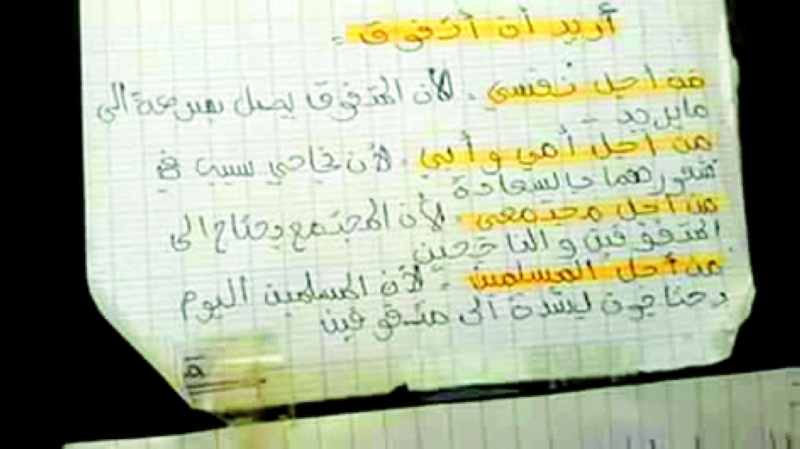 أريد أن أتفوق =
من أجل نفسي . لأن المتفوق يصل بسرعة الى
ما يريد
من أجل أمي و أبي . لأن نجاحي سبب في
شعورهما بالسعادة
من أجل مجتمعي . لأن المجتمع يحتاج الى
المتفوقين و الناجحين
من أجل المسلمين . لأن المسلمين اليوم
يحتاجون لشدة الى متفوقين